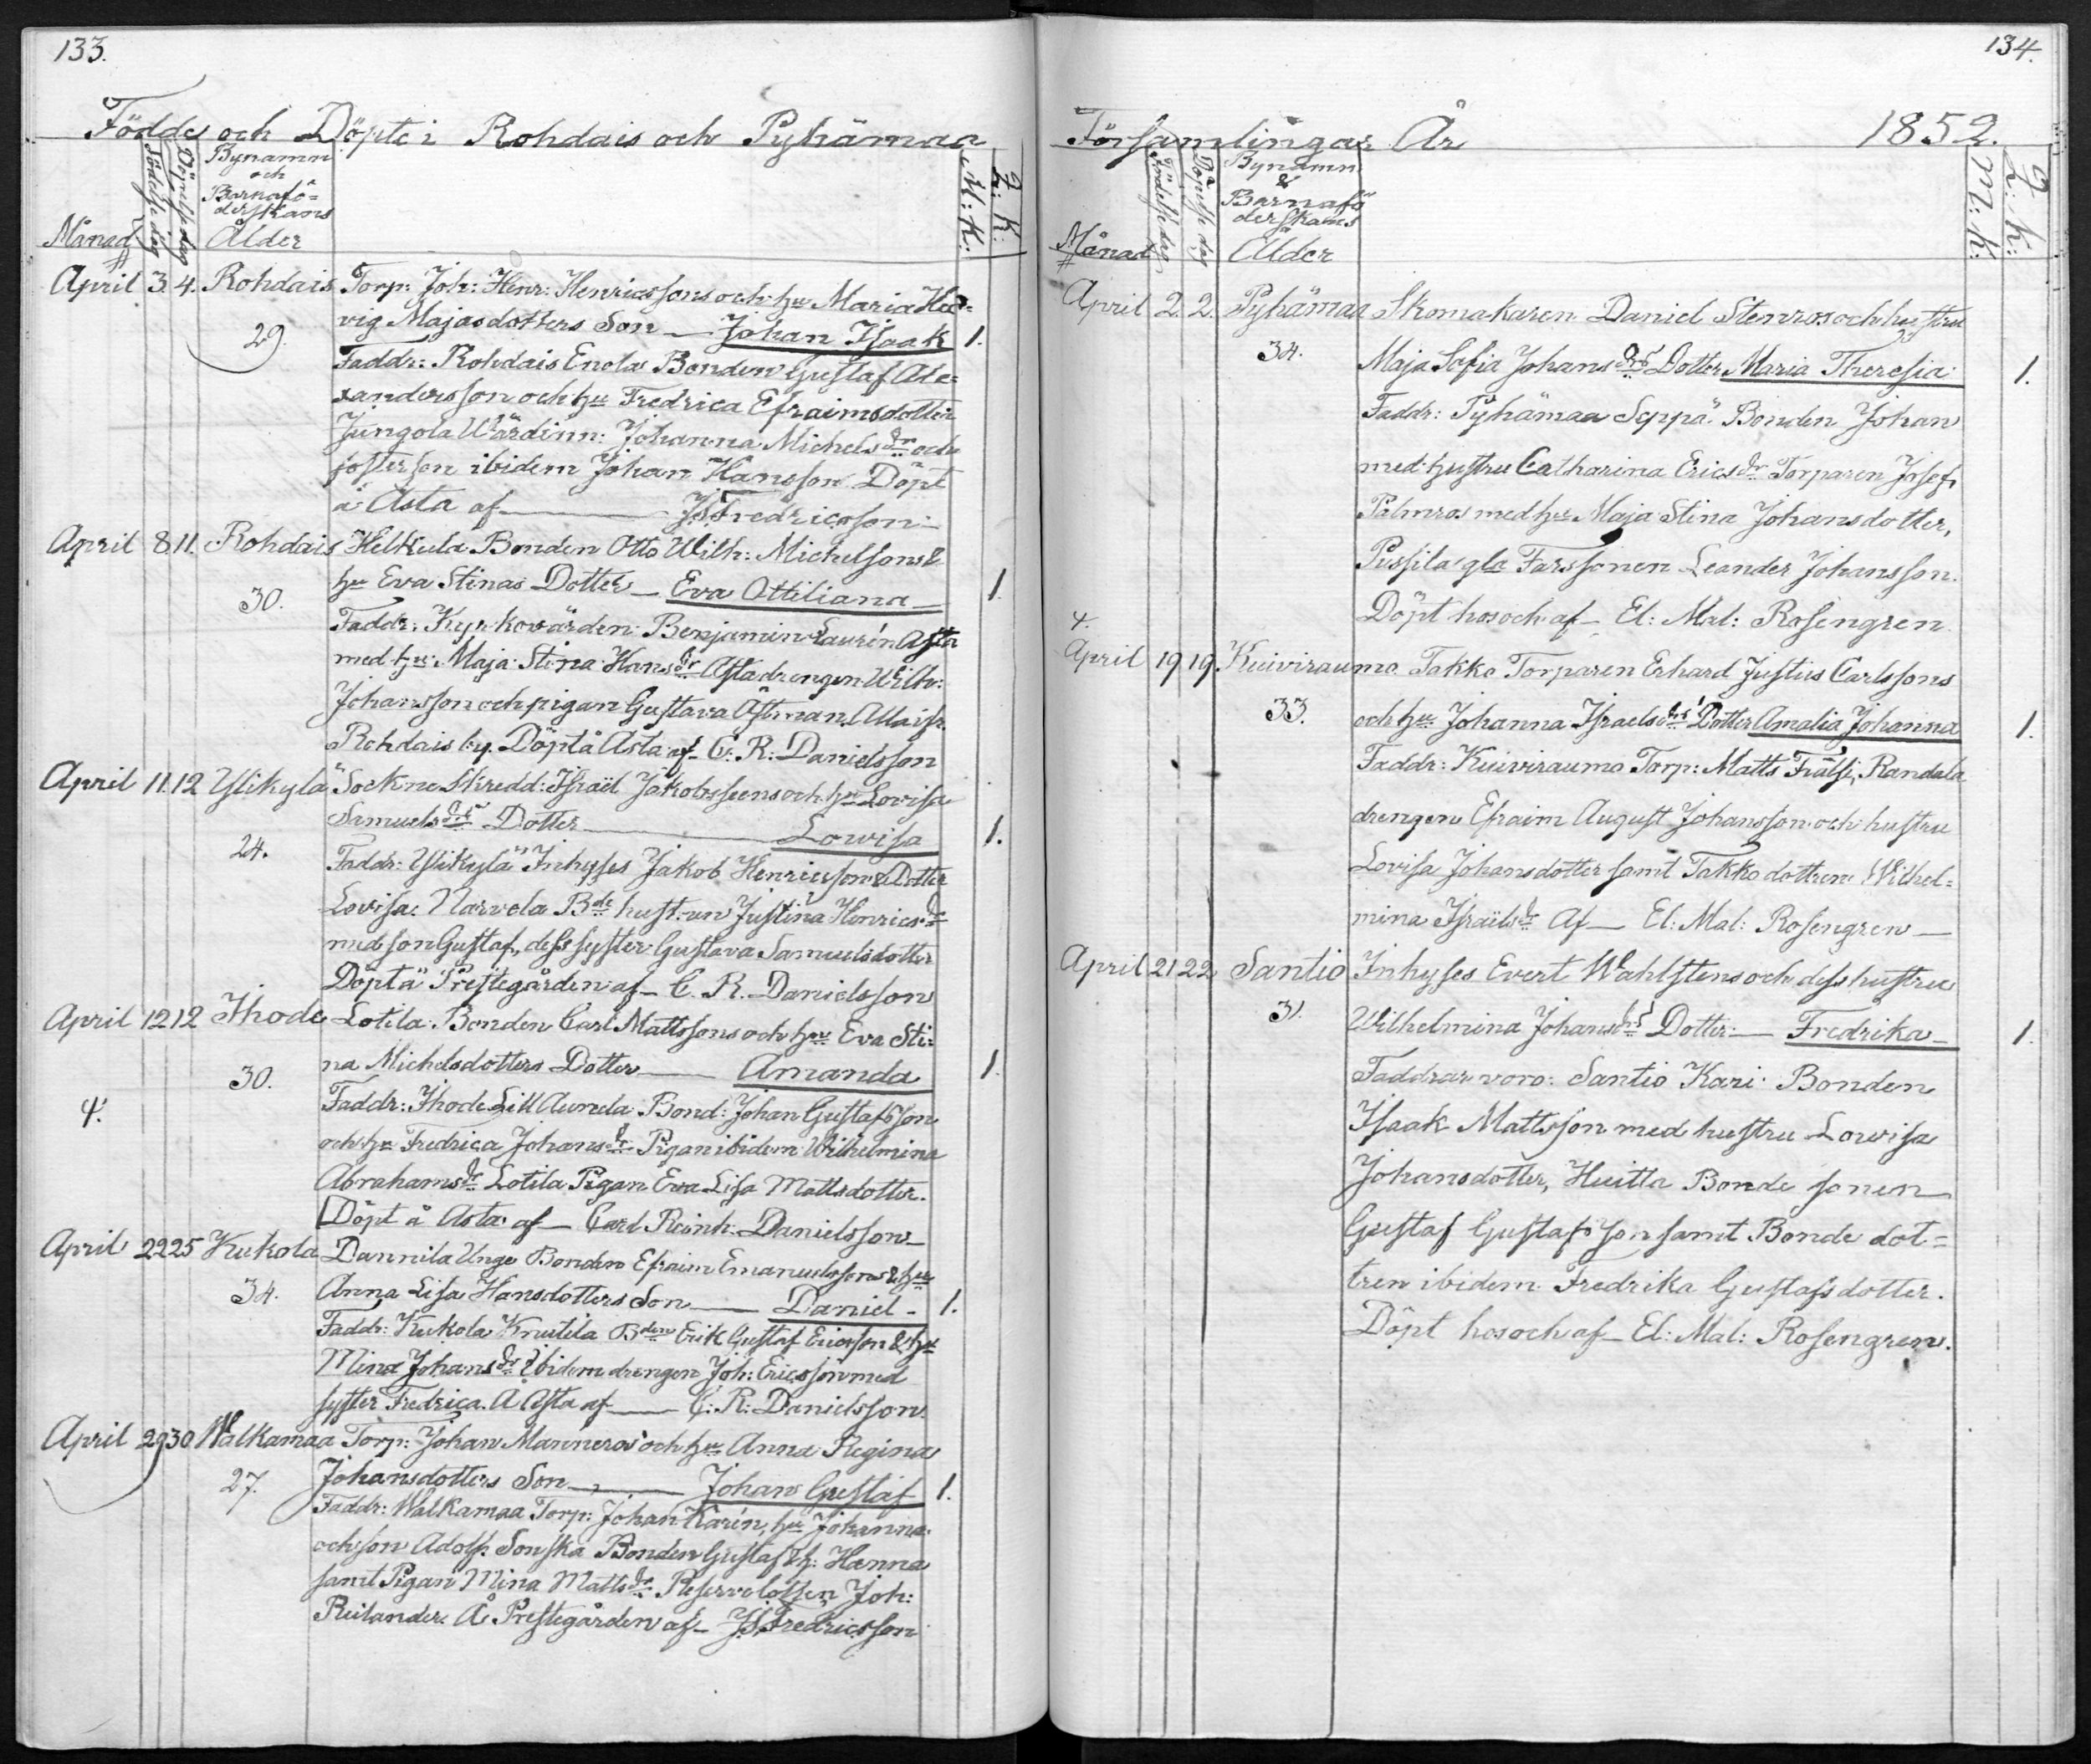 133.
Födde och Döpte i Rohdais och Pyhämaa
Månad
Födelse dag
Döpelse dag
Bynamn
och
Barnafö-
derskans
Ålder
M: K:
Q: K:
April 3. 4. Rohdais Torp: Joh: Henr: Henricssons och hu Maria Hed-
29. vig Majasdotters Son — Johan Isaak 1.
Faddr: Rohdais Enola Bonden Gustaf Ale-
xandersson och hu Fredrica Efraimsdotter
Jungola Wärdinn: Johanna Michels dr och
fosterson ibidem Johan Hansson Döpt
å Asta af — J. Fredricsson
April 8. 11. Rohdais Helkula Bonden Otto Wilh: Michelsons &
30. hu Eva Stinas Dotter — Eva Ottiliana — 1
Faddr: Kyrkovärden Benjamin Laurén Asta
med hu Maja Stina Hans dr Asta drengen Wilh:
Johansson och pigan Gustava Östman
Rohdais by. Döpt å Asta af C. R. Danielsson
April 11. 12 Ylikylä Sockne Skredd: Israel Jakobssons och hu Lovisa
24. Samuels drs Dotter — Lowisa 1.
Faddr: Ylikylä Inhyses Jakob Henricsson & Dotter
Lovisa. Narvela Bde hustrun Justina Henrics dr
med son Gustaf, dess syster Gustava Samuelsdotter
Döpt å Prestegården af — C. R. Danielsson
April 12 12 Ihode Lotila Bonden Carl Mattssons och hu Eva Sti-
30. na Michelsdotters Dotter — Amanda 1.
4. Faddr: Ihode Lill Aunela Bond: Johan Gustafsson
och hu Fredrica Johans dr Pigan ibidem Wilhelmina
Abrahams dr Lotila Pigan Eva Lisa Mattsdotter.
Döpt å Asta af — Carl Reinh: Danielsson
April 22 25 Kukola Dannila Unge Bonden Efraim Emanuelssons & hu
34. Anna Lisa Hansdotters Son — Daniel - 1.
Faddr: Kukola Knutila Bden Erik Gustaf Ericsson & hu
Mina Johans dr ibidem drengen Joh: Ericsson med
syster Fredrica. Å Asta af — C: R: Danielsson.
April 29 30 Walkamaa Torp: Johan Manneros och hu Anna Regina
27. Johansdotters Son — Johan Gustaf 1.
Faddr: Walkamaa Torp: Johan Karén, hu Johanna
och son Adolf. Sonska Bonden Gustaf & h: Hanna
samt Pigan Mina Matts dr Reservelotsen Joh:
Reilander. Å Prestegården af — J. Fredricsson
134.
Församlingar År 1852.
Månad
Födelse dag
Döpelse dag
Bynamn
&
Barnafö
derskans
Ålder
M: K:
Q: K:
April 2. 2. Pyhämaa Skomakaren Daniel Stenros och hustru
34. Maja Sofia Johans drs Dotter Maria Theresia 1.
Faddr: Pyhämaa Seppä Bonden Johan
med hustru Catharina Erics dr Torparen Josef
Palmros med hu Maja Stina Johansdotter,
Pussila gla Farssonen Leander Johansson.
Döpt hos och af — El: Mal: Rosengren
4.
April 19 19. Kuivirauma Takko Torparen Erhard Justus Carlssons
33. och hu Johanna Israels drs Dotter Amalia Johanna 1.
Faddr: Kuivirauma Torp: Matts Frälsi, Randala
drengen Efraim August Johansson och hustru
Lovisa Johansdotter samt Takko dottren Wilhel-
mina Israels dr Af — El: Mal: Rosengren —
April 21 22 Santio Inhyses Evert Wahlstens och dess hustru
31. Wilhelmina Johans drs Dotter — Fredrika — 1.
Faddrar voro: Santio Kari Bonden
Isaak Mattsson med hustru Lowisa
Johansdotter, Huitta Bonde sonen
Gustaf Gustafsson samt Bonde dot-
tren ibidem Fredrika Gustafsdotter.
Döpt hos och af — El: Mal: Rosengren.